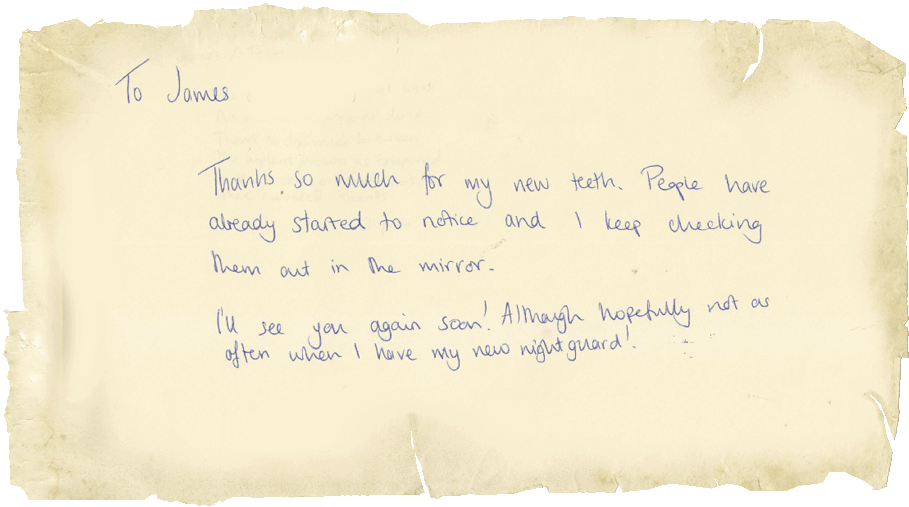 To James
Thanks so much for my new teeth. People have
already started to notice and I keep checking
them out in the mirror.
I'll see you again soon! Although hopefully not as
often when I have my new nightguard!